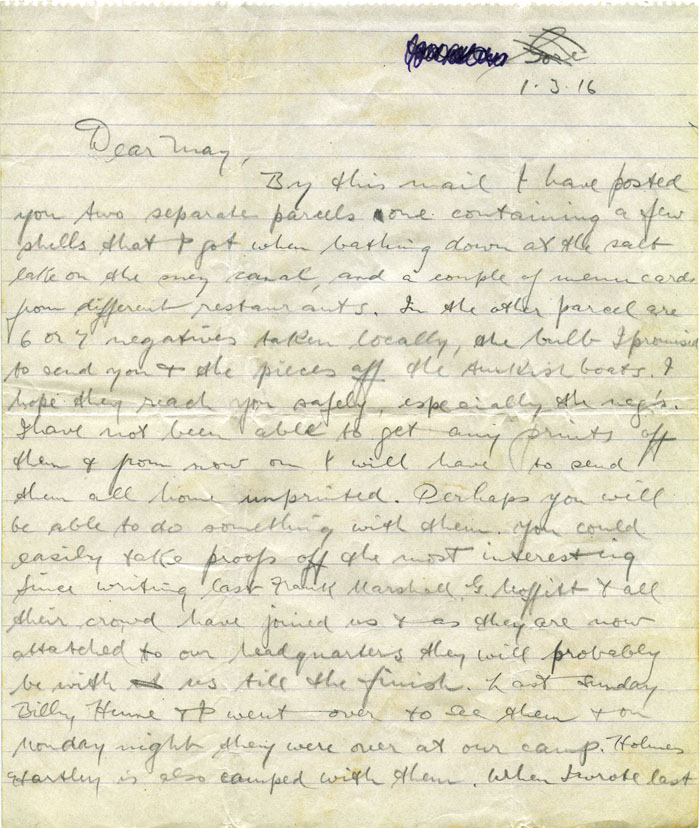 1.3.16
Dear May,
By this mail I have posted
you two separate parcels one containing a few
shells that I got when bathing down at the salt
lake on the suey canal, and a couple of menu cards
from different restaurants. In the other parcel are
6 or 7 negatives taken locally, the bulb I promised
to send you & the pieces off the turkish boats. I
hope they reach you safely, especially the neg's.
I have not been able to get any prints off
them & from now on I will have to send
them all home unprinted. Perhaps you will
be able to do something with them. You could
easily take proofs off the most interesting
Since writing last Frank Marshall, G Moffitt & all
their crowd have joined us & as they are now
attatched to our headquarters they will probably
be with us till the finish. Last Sunday
Billy & I went over to see them & on
Monday night they were over at our camp. Holmes
Hartley is also camped with them. When I wrote last